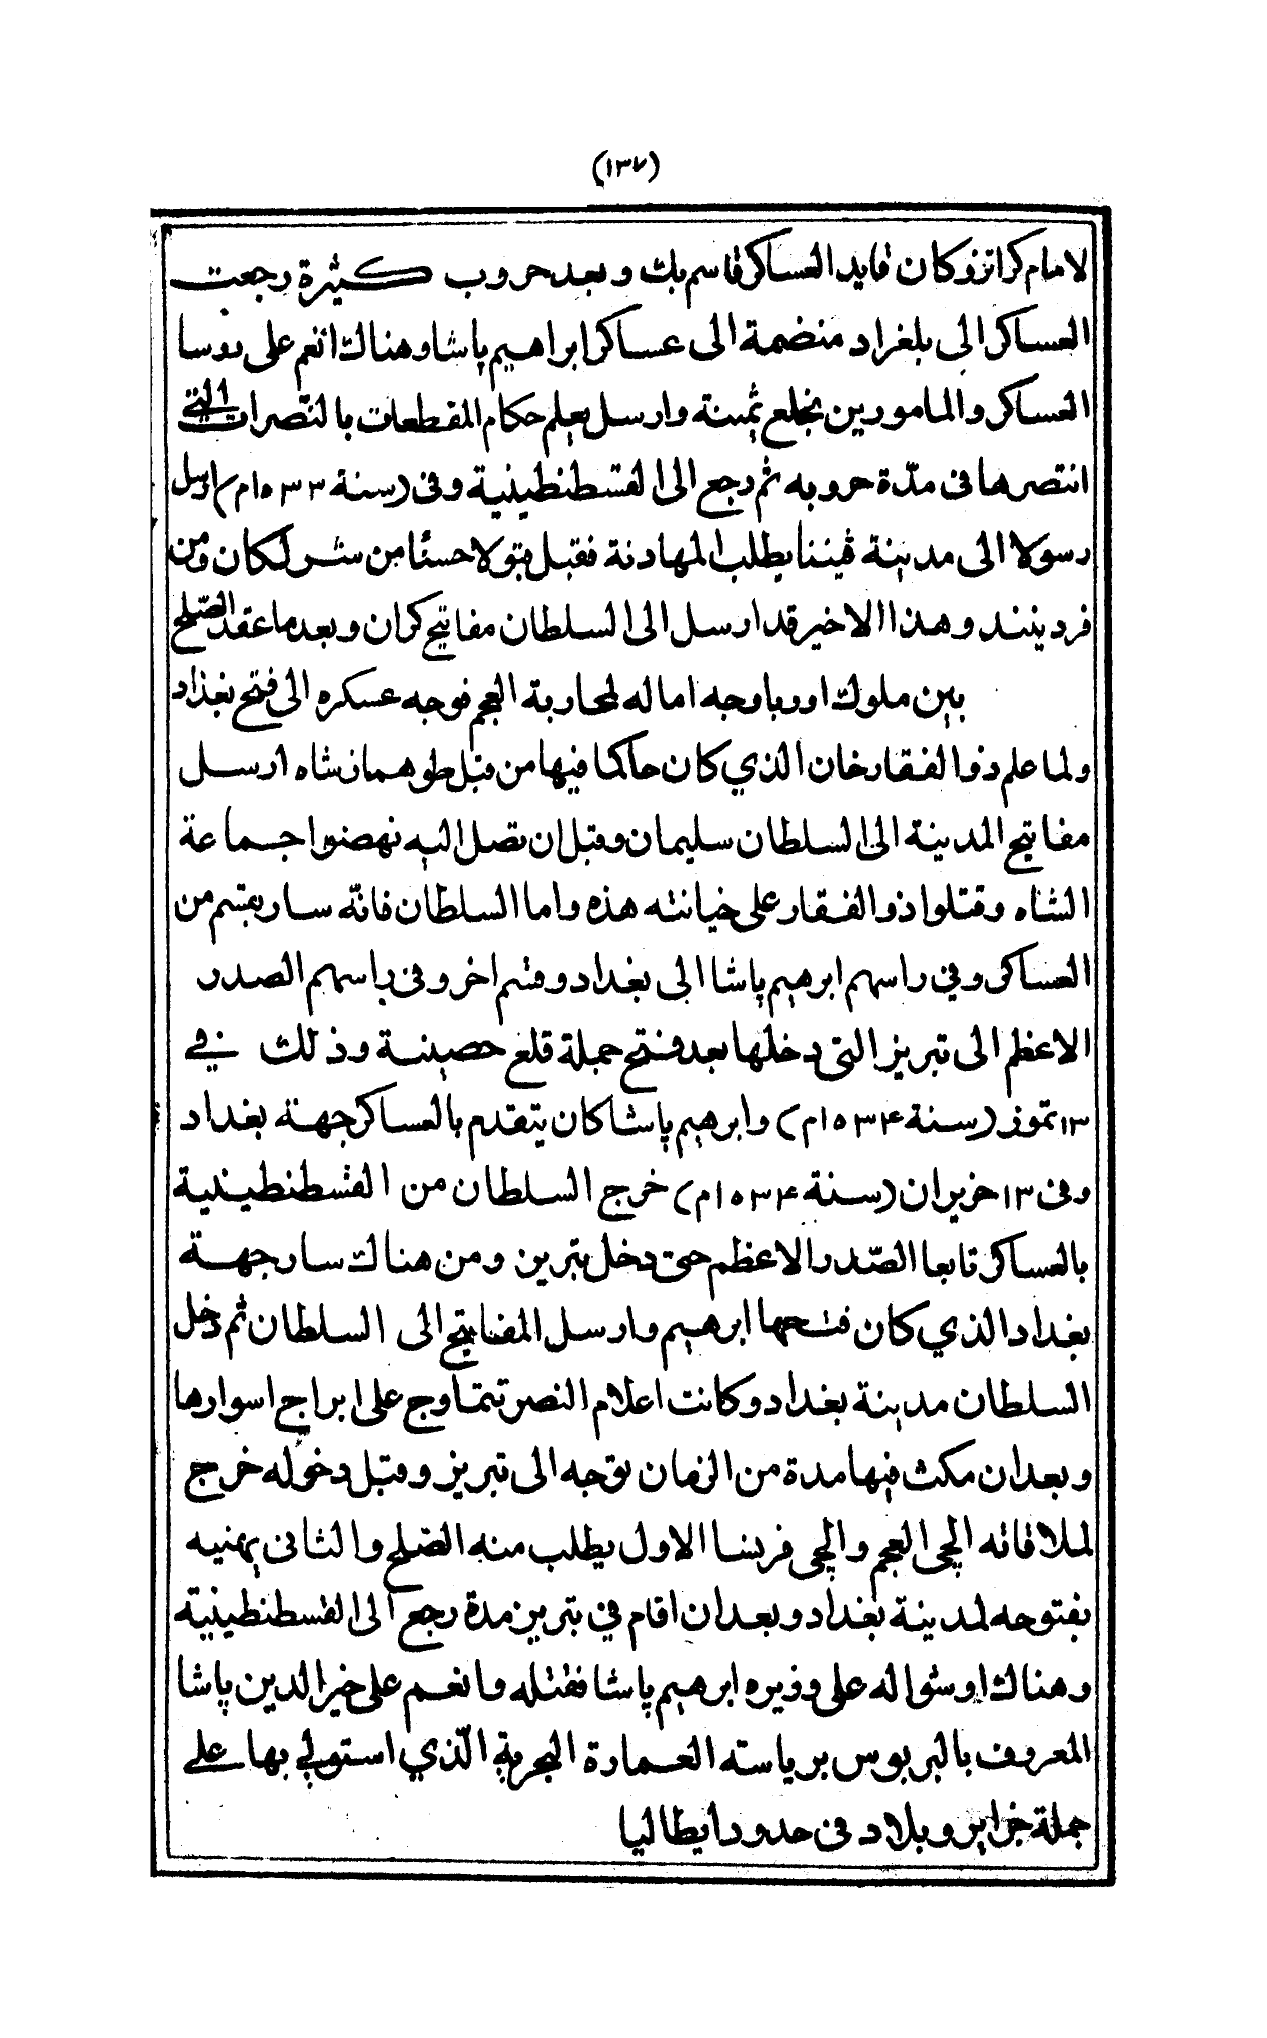 (١٣٧)
لامام كراتزوكان قايد العساكر قاسم بك وبعد حروب كثيرة رجعت
العساكر الى بلغراد منضمة الى عساكر ابراهيم پاشا وهناك انعم على روسا
العساكر والمامورين بخلع ثمينة وارسل يعلم حكام المقطعات بالنتصرات التي
انتصرها فى مدّة حروبه ثم رجع الى القسطنطينية وفى (سنة ١٥٣٣م) ارسل
رسولا الى مدينة ڤيننا يطلب المهادنة فقبل قبولا حسنًا من شرلكان ومن
فردينند وهذا الاخير قد ارسل الى السلطان مفاتيح كران وبعد ما عقد الصّلح
بين ملوك اوروبا وجه اماله لمحاربة العجم فوجه عسكره الى فتح بغداد
ولما علم ذوا لفقارخان الذي كان حاكما فيها من قبل طوهماز شاه ارسل
مفاتيح المدينة الى السلطان سليمان وقبل ان تصل اليه نهضوا جماعة
الشاه وقتلوا ذوالفقار على خيانته هذه واما السلطان فانّه سار بقسم من
العساكر وفي راسهم ابرهيم پاشا الى بغداد وقسم اخر وفى راسهم الصدر
الاعظم الى تبريز التى دخلها بعد فتح جملة قلع حصينة وذلك في
١٣ تموز (سنة ١٥٣٤م) وابرهيم پاشا كان يتقدم بالعساكر جهة بغداد
وفى ١٣ حزيران (سنة ١٥٣٤م) خرج السلطان من القسطنطينية
بالعساكر تابعا الصّدر الاعظم حتى دخل تبريز ومن هناك سار جهة
بغداد الذي كان فتحها ابرهيم وارسل المفاتيح الى السلطان ثم دخل
السلطان مدينة بغداد وكانت اعلام النصر تتماوج على ابراج اسوارها
وبعد ان مكث فيها مدة من الزمان توجه الى تبريز وقبل دخوله خرج
لملاقاته الچى العجم والچى فرنسا الاول يطلب منه الصّلح والثانى يهنيه
بفتوحه لمدينة بغداد وبعد ان اقام في تبريز مدة رجع الى القسطنطينية
وهناك اوشوا له على وزيره ابرهيم پاشا فقتله وانعم على خيرالدين پاشا
المعروف بالبربوس برياسته العمارة البحرية الّذي استولي بها علي
جملة جزاير وبلاد فى حدود ايطاليا